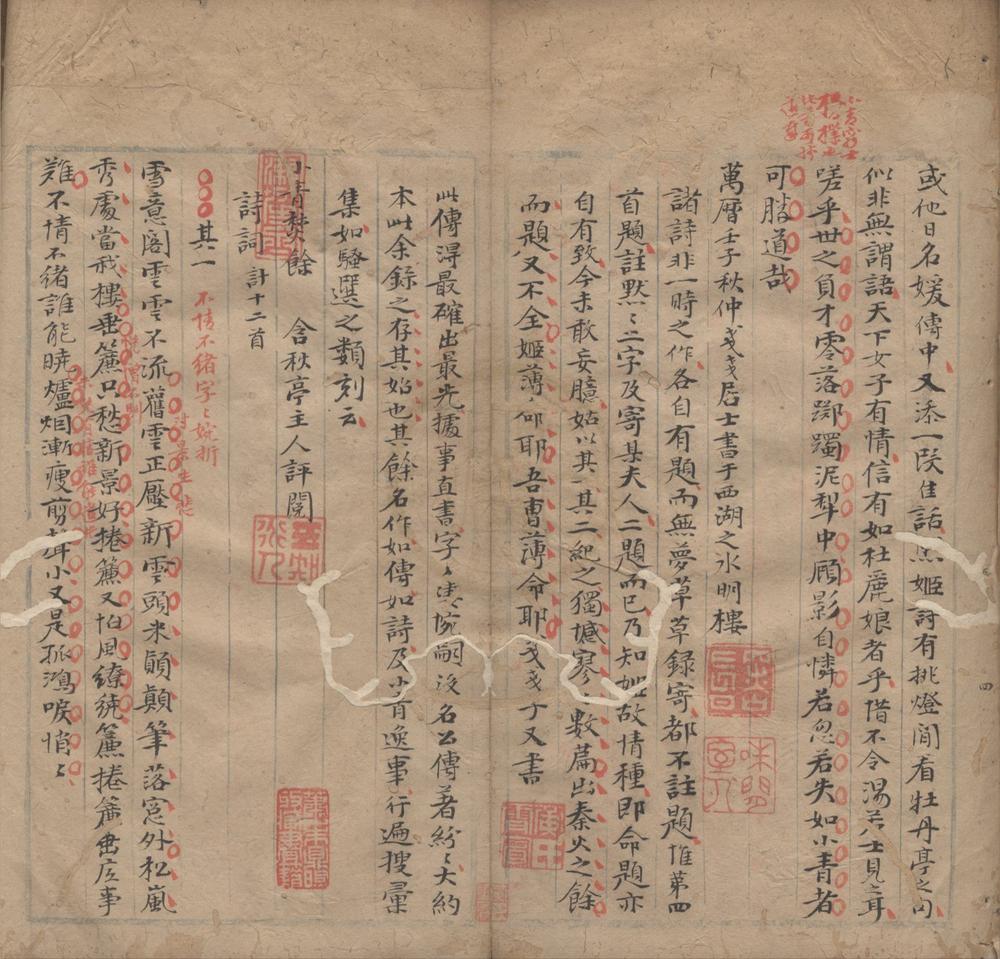 或他日名媛傳中又添一段佳話焉姬詩有挑燈閒看牡丹亭之句
似非無謂語天下女子有情信有如杜麗娘者乎借不令湯若士見之耳
嗟乎世之負才零落躑躅泥犁中顧影自憐若忽若失如小青者
可勝道哉
萬曆壬子秋仲戔戔居士書于西湖之水明樓
諸詩非一時之作各自有題而無夢草草錄寄都不註題惟第四
首題註默〻二字及寄某夫人二題而已乃知姬故情種即命題亦
自有致今未敢妄臆姑以其一其二紀之獨憾寥〻數篇出秦火之餘
而題又不全姬薄命耶吾曹薄命耶戔戔子又書
此傳得最確出最先據事直書字〻悽惋嗣後名公傳著紛〻大約
本此余錄之存其始也其餘名作如傳如詩及小青逸事行遍搜彙
集如騷選之類刻云
小青焚餘 含秋亭主人評閱
詩詞 計十二首
其一 不情不緒字〻婉折
雪意閣雲雲不流舊雲正壓新雲頭米顛顛筆落窓外松嵐
秀處當我樓垂簾只愁新景好捲簾又怕風繚繞簾捲簾垂底事
難不情不緒誰能曉爐烟漸瘦剪聲小又是孤鴻唳悄〻